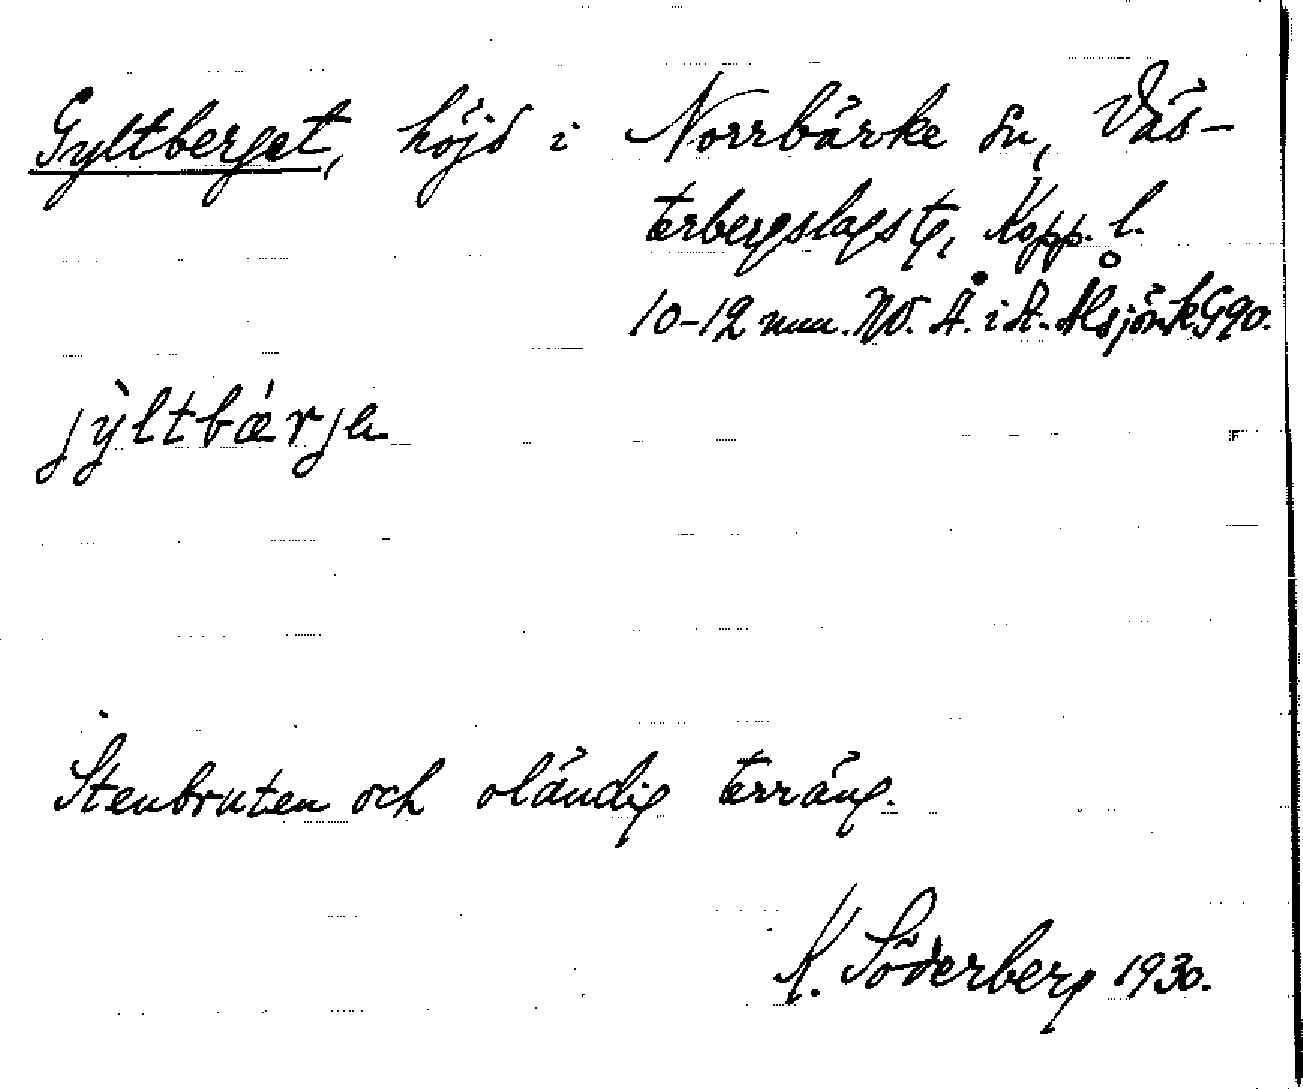 Gyltberget, höjd i Norrbärke sn, Väs-
terbergslags tg, Kopp. l.
10-12 mm. NV. Å. i St. Ålsjön k G90.
jỳltbǽrja
Stenbruten och oländig terräng.
K. Söderberg 1930.